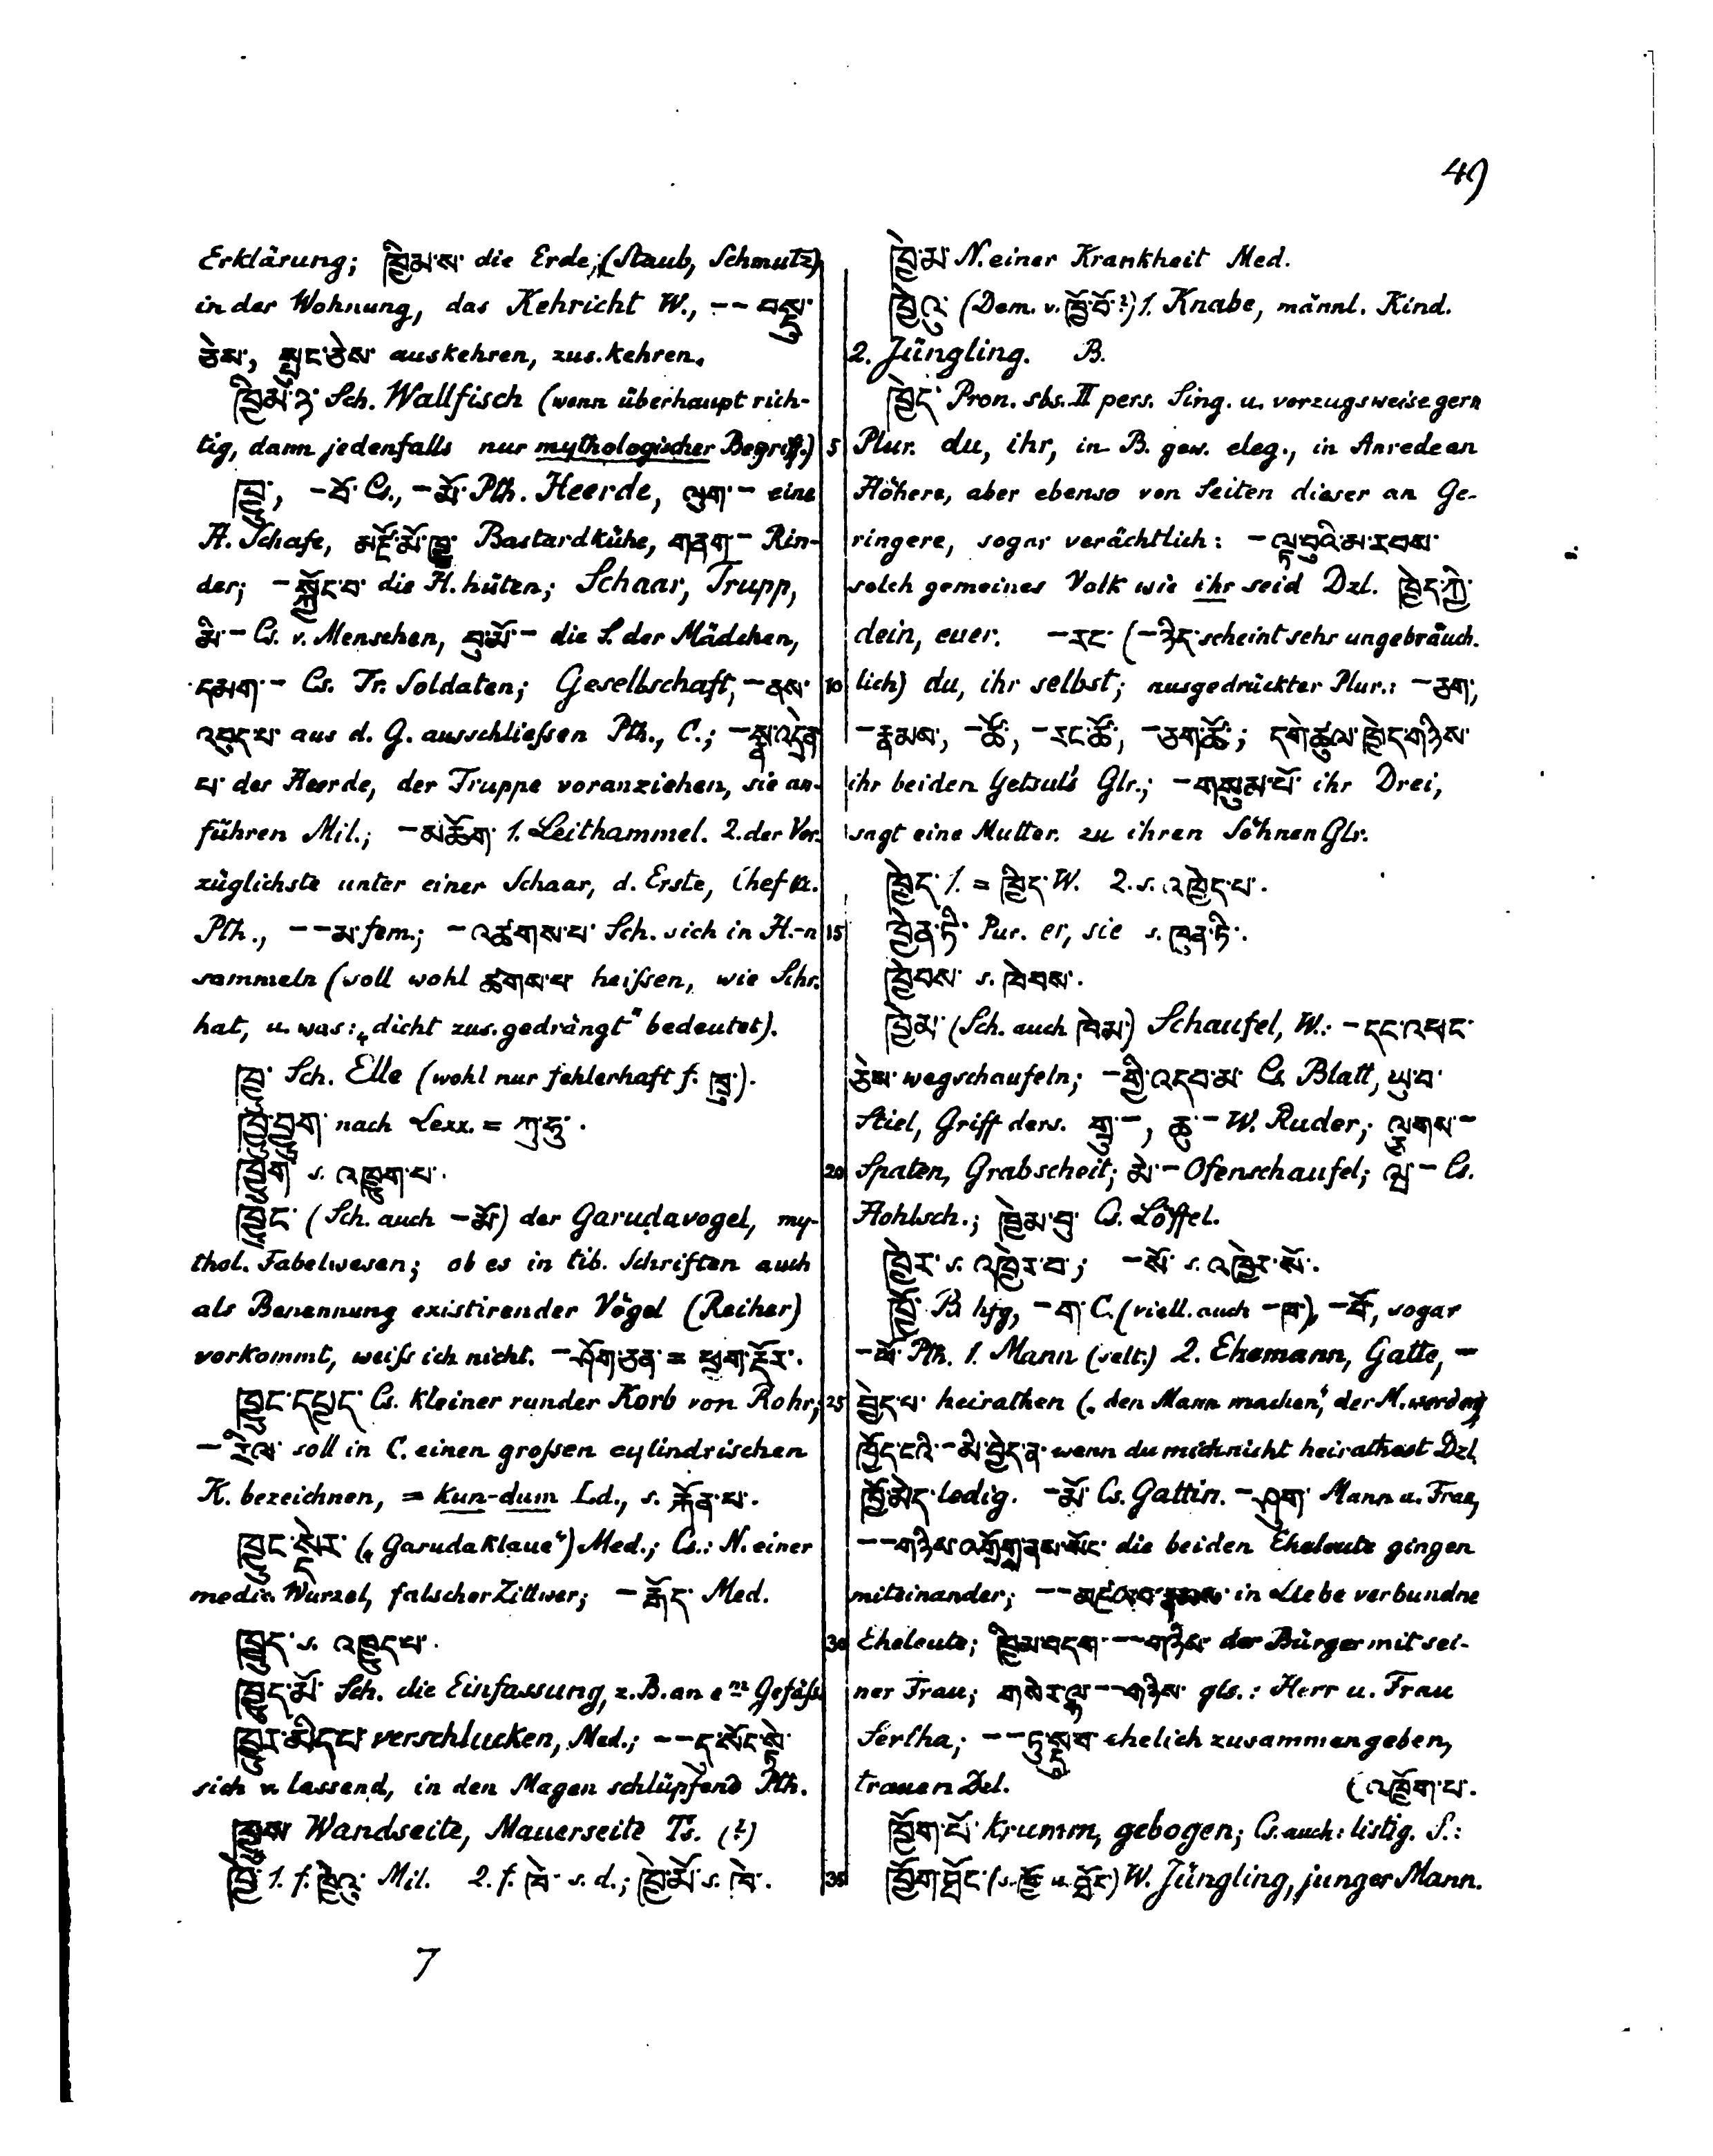 49
Erklärung; ཁྱིམ་ས་ die Erde, (Staub, Schmutz)
in der Wohnung, das Kehricht W., -- བསྡུ་
ཅེས་, སྤྱང་ཅེས་ auskehren, zus.kehren.
Sch. Wallfisch (wenn überhaupt rich-
tig, dann jedenfalls nur mythologischer Begriff.)
ཁྱུ་, -བོ་ Cs., -མོ་ Pth. Heerde, ལུག་- eine
H. Schafe, མཛོ་མོ་ཁྱུ་ Bastardkühe, གནག་- Rin-
der; -སྐྱོང་བ་ die H. hüten; Schaar, Trupp,
མི་- Cs. v. Menschen, བུ་མོ་- die S. der Mädchen,
དམག་- Cs. Tr. Soldaten; Gesellschaft, -ནས་
འབུད་པ་ aus d. G. ausschliessen Pth., C.; -སྣ་འདྲེན་
པ་ der Heerde, der Truppe voranziehen, sie an-
führen Mil.; -མཆོག་ 1. Leithammel. 2. der Vor-
züglichste unter einer Schaar, d. Erste, Chef
Pth., --མ་ fem.; -འཚགས་པ་ Sch. sich in H.-n
sammeln (soll wohl ཚགས་པ་ heissen, wie Schr.
hat, u. was: „dicht zus.gedrängt" bedeutet).
ཁྱུ་ Sch. Elle (wohl nur fehlerhaft f. ཁྲུ་).
ཁྱུ་བྱུག་ nach Lexx. = ཀུ་ཧུ་.
ཁྱུག་ s. འཁྱུག་པ་.
ཁྱུང་ (Sch. auch -མོ་) der Garuḍavogel, my-
thol. Fabelwesen; ob es in tib. Schriften auch
als Benennung existirender Vögel (Reiher)
vorkommt, weiss ich nicht. -ཤོག་ཅན་ = ཕྱག་རྡོར་.
ཁྱུང་དཔྱད་ Cs. kleiner runder Korb von Rohr;
-རིལ་ soll in C. einen grossen cylindrischen
K. bezeichnen, = kun-dum Ld., s. རྐོན་པ་.
ཁྱུང་སྡེར་ („Garudaklaue") Med.; Cs.: N. einer
medic. Wurzel, falscher Zittwer; -རྒོད་ Med.
ཁྱུད་ s. འཁྱུད་པ་.
ཁྱུད་མོ་ Sch. die Einfassung, z.B. an em Gefäss
ཁྱུར་མིད་པ་ verschlucken, Med.; --དུ་སོང་སྟེ་
sich v. lassend, in den Magen schlüpfend Pth.
ཁྱུས་ Wandseite, Mauerseite Ts. (?)
ཁྱེ་ 1. f. ཁྱེའུ་ Mil. 2. f. ཁེ་ s. d.; ཁྱེ་མོ་ s. ཁེ་.
7
ཁྱེ་མ་ N. einer Krankheit Med.
ཁྱེའུ་ (Dem. v. ཁྱོ་བོ་?) 1. Knabe, männl. Kind.
2. Jüngling. B.
ཁྱེད་ Pron. sbs. II pers. Sing. u. vorzugsweise gern
5 Plur. du, ihr, in B. gew. eleg., in Anrede an
Höhere, aber ebenso von Seiten dieser an Ge-
ringere, sogar verächtlich: -ལྟ་བུའི་མ་རབས་
solch gemeines Volk wie ihr seid Dzl. ཁྱེད་ཀྱི་
dein, euer. -རང་ (-ཉིད་ scheint sehr ungebräuch-
10 lich) du, ihr selbst; ausgedrückter Plur.: -ཅག་,
-རྣམས་, -ཚོ་, -རང་ཚོ་, -ཅག་ཚོ་; དགེ་ཚུལ་ཁྱེད་གཉིས་
ihr beiden Getsuls Glr.; -གསུམ་པོ་ ihr Drei,
sagt eine Mutter zu ihren Söhnen Glr.
ཁྱེད་ 1. = ཁྱིད་ W. 2. s. འཁྱེད་པ་.
15 ཁྱེན་ཏི་ Pur. er, sie s. ཁུན་ཏི་.
ཁྱེབས་ s. ཁེབས་.
ཁྱེམ་ (Sch. auch ཁེམ་) Schaufel, W.: -དང་འཕང་
ཅེས་ wegschaufeln; -གྱི་འདབ་མ་ Cs. Blatt, ཡུ་བ་
Stiel, Griff ders. གྲུ་-, ཆུ་- W. Ruder; ལྕགས་-
20 Spaten, Grabscheit; མེ་- Ofenschaufel; - Cs.
Hohlsch.; ཁྱེམ་བུ་ Cs. Löffel.
ཁྱེར་ s. འཁྱེར་བ་; -སོ་ s. འཁྱེར་སོ་.
ཁྱོ་ B. hfg, -ག་ C. (viell. auch -ཁ་), -བོ་, sogar
Pth. 1. Mann (selt.) 2. Ehemann, Gatte, -
25 བྱེད་པ་ heirathen („den Mann machen", der M. werden)
ཁྱོད་ངའི་-མི་བྱེད་ན་ wenn du mich nicht heirathest Dzl.
ཁྱོ་མེད་ ledig. -མོ་ Cs. Gattin. -ཤུག་ Mann u. Frau,
--གཉིས་འགྲོགས་ནས་སོང་ die beiden Eheleute gingen
miteinander; -- in Liebe verbundne
30 Eheleute; ཁྱིམ་བདག་--གཉིས་ der Bürger mit sei-
ner Frau; གསེར་ལྷ་--གཉིས་ gls.: Herr u. Frau
Serlha; --ཏུ་སྡུག་ ehelich zusammengeben,
trauen Dzl. (འཁྱོག་པ་.
ཁྱོག་པོ་ krumm, gebogen; Cs. auch: listig. S.:
35 ཁྱོག་ཐོང་ (s. ཁྱོ་ u. ཐོང་) W. Jüngling, junger Mann.